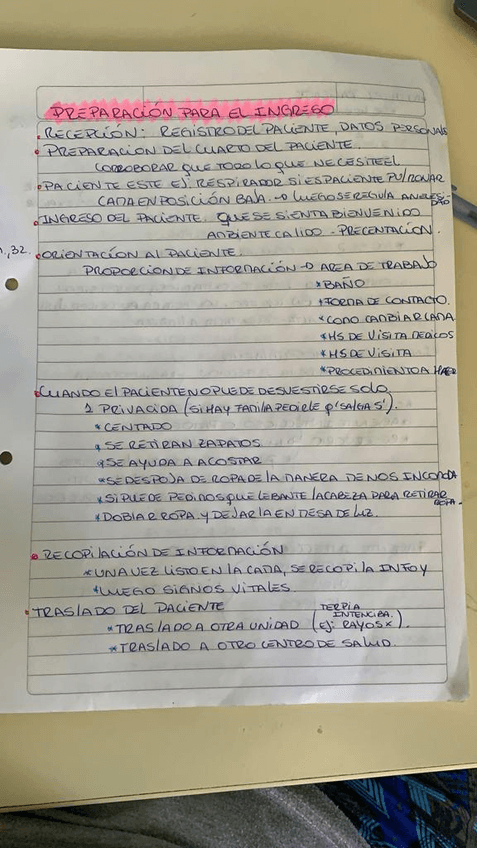 PREPARACIÓN PARA EL INGRESO
• RECEPCIÓN: REGISTRO DEL PACIENTE, DATOS PERSONALES
• PREPARACION DEL CUARTO DEL PACIENTE.
CORROBORAR QUE TODO LO QUE NECESITE EL
• PACIENTE ESTE EJ: RESPIRADOR SI ES PACIENTE PULMONAR
CAMA EN POSICIÓN BAJA. → LUEGO SE REGULA
• INGRESO DEL PACIENTE. QUE SE SIENTA BIENVENIDO
AMBIENTE CALIDO - PRECENTACIÓN.
, 32.
• ORIENTACÍON AL PACIENTE.
PROPORCION DE INFORMACIÓN → AREA DE TRABAJO
* BAÑO
* FORMA DE CONTACTO.
* COMO CAMBIAR CAMA.
* HS DE VISITA MEDICOS
* HS DE VISITA
* PROCEDIMIENTO A
• CUANDO El PACIENTE NO PUEDE DESVESTIRSE SOLO.
1 PRIVACIDA (SI HAY FAMILA PEDIRLE q' SALGAS').
* CENTADO
* SE RETIRAN ZAPATOS
* SE AYUDA A ACOSTAR
* SE DESPOJA DE ROPA DE LA MANERA DE NOS INCOMODA
* SI PUEDE PEDIMOS QUE LEBANTE LA CABEZA PARA RETIRAR ROPA.
* DOBLAR ROPA Y DEJARLA EN MESA DE LUZ.
• RECOPILACIÓN DE INFORMACIÓN
* UNA VEZ LISTO EN LA CAMA, SE RECOPILA INFO Y
* LUEGO SIGNOS VITALES.
• TRASLADO DEL PACIENTE
* TRASLADO A OTRA UNIDAD (TERPIA INTENCIBA. EJ: RAYOS X).
* TRASLADO A OTRO CENTRO DE SALUD.